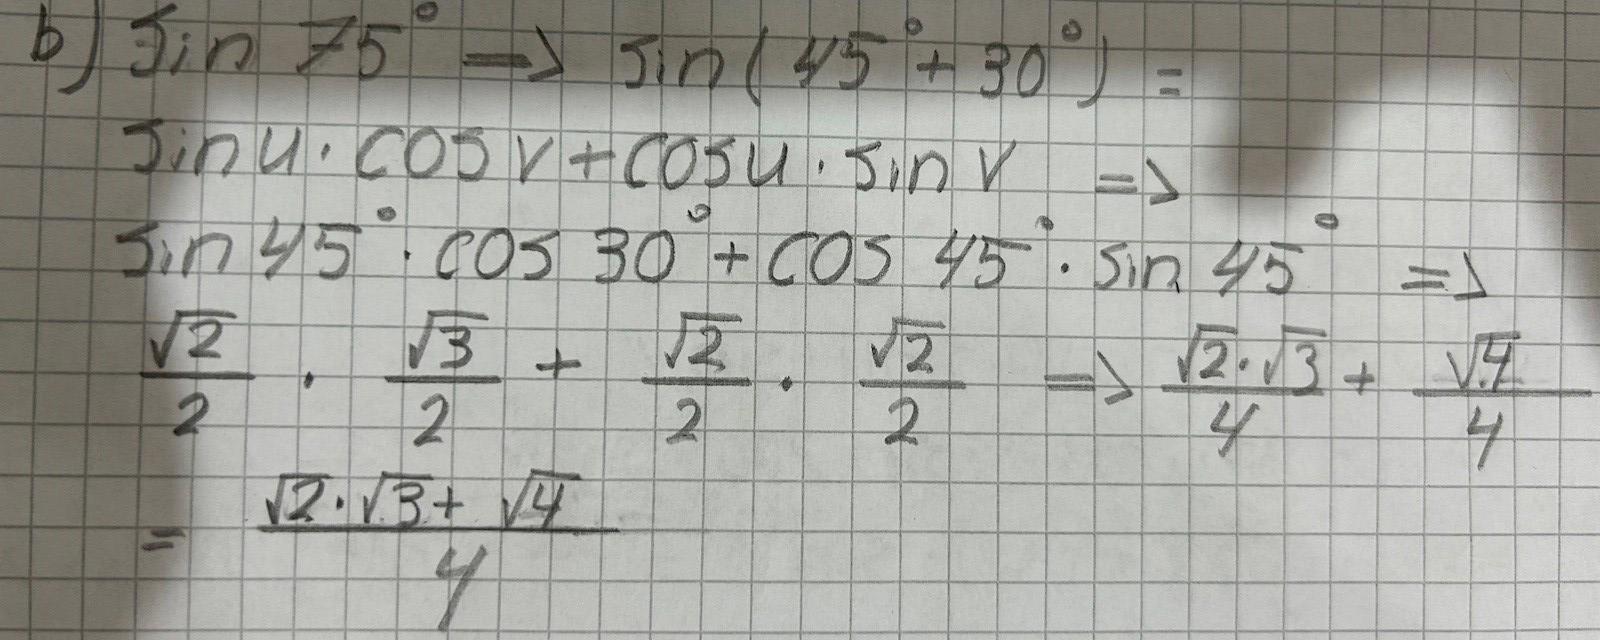 b) sin 75° => sin(45° + 30°) =
sin u · cos v + cos u · sin v =>
sin 45° · cos 30° + cos 45° · sin 45° =>
√2/2 · √3/2 + √2/2 · √2/2 => √2·√3/4 + √4/4
= √2·√3 + √4/4